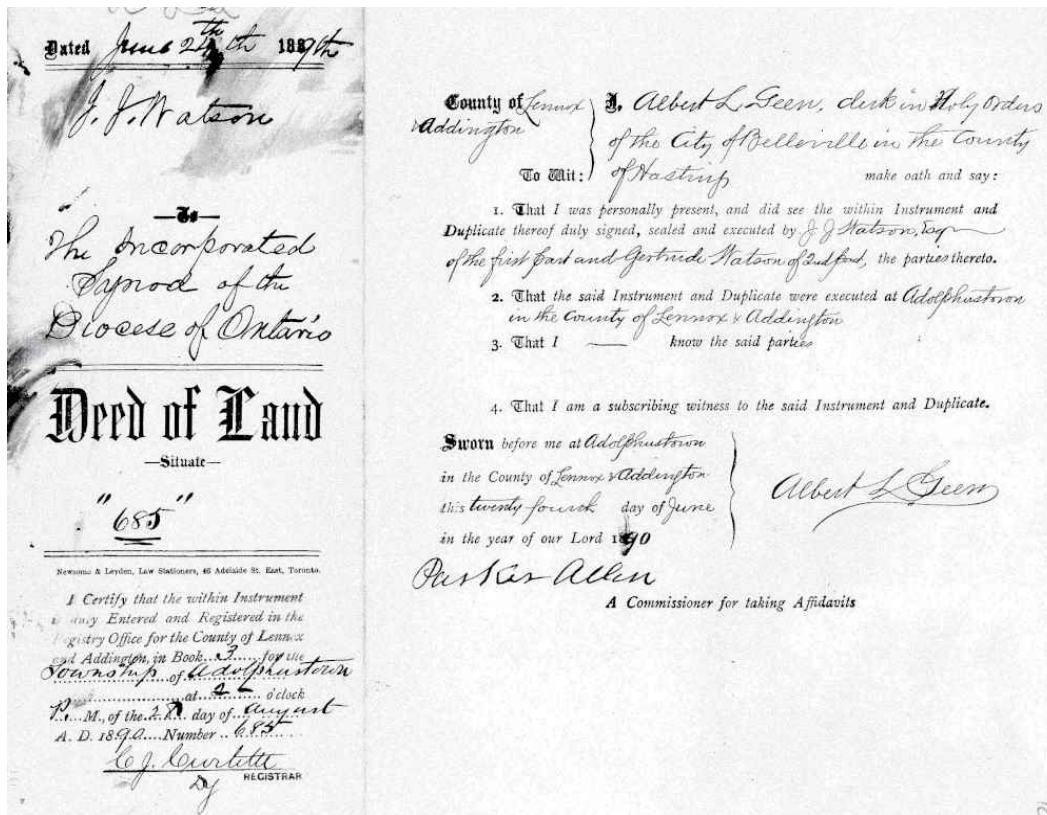 Dated June 24th 1889th
J. J. Watson
—To—
The Incorporated
Synod of the
Diocese of Ontario
Deed of Land
—Situate—
" 685 "
Newsome & Leyden, Law Stationers, 46 Adelaide St. East, Toronto.
I Certify that the within Instrument
is duly Entered and Registered in the
Registry Office for the County of Lennox
and Addington, in Book 3 for the
Township of Adolphustown
at 2 o'clock
P. M., of the 28 day of August
A. D. 1890 Number 685
REGISTRAR
Dy
County of Lennox
& Addington
To Wit:
I, Albert L. Geen, clerk in Holy Orders
of the City of Belleville in the County
of Hastings make oath and say:
1. That I was personally present, and did see the within Instrument and
Duplicate thereof duly signed, sealed and executed by J J Watson, Esq
of the first Part and Gertrude Watson of 2nd part, the parties thereto.
2. That the said Instrument and Duplicate were executed at Adolphustown
in the County of Lennox & Addington
3. That I —— know the said parties
4. That I am a subscribing witness to the said Instrument and Duplicate.
Sworn before me at Adolphustown
in the County of Lennox & Addington
this twenty fourth day of June
in the year of our Lord 1890
Albert L Geen
Parker Allen
A Commissioner for taking Affidavits